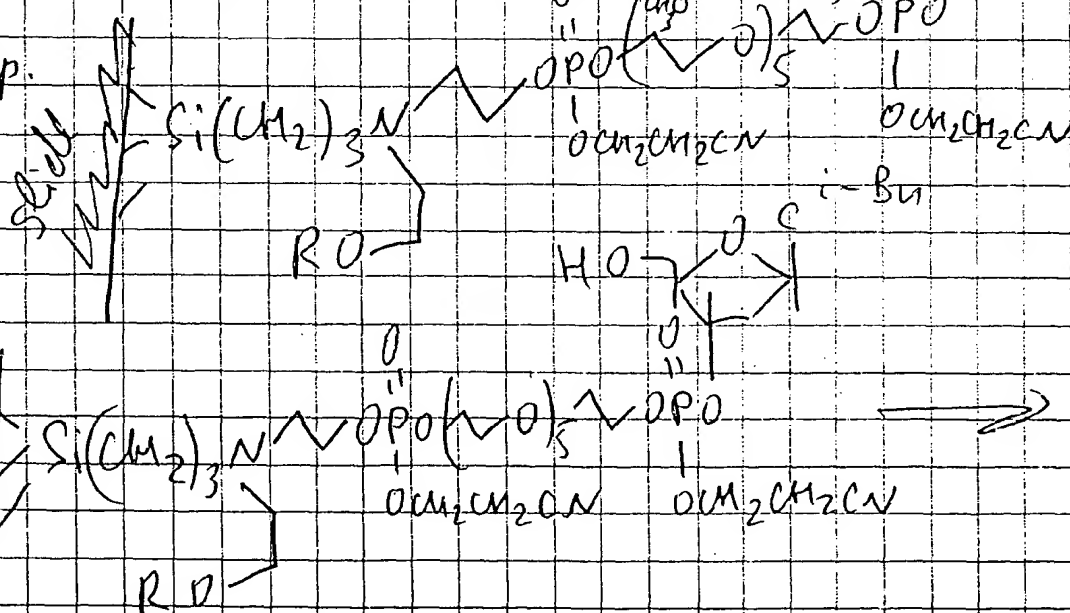 OPO
p. Si(CH2)3N OPO( O)5
OCH2CH2CN OCH2CH2CN
slide
i-Bu
C
RO HO O
O O
Si(CH2)3N OPO( O)5 OPO
OCH2CH2CN OCH2CH2CN
RO